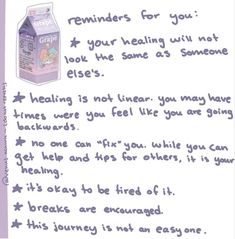 reminders for you:
★ your healing will not
look the same as someone
else's.
★ healing is not linear. you may have
times were you feel like you are going
backwards.
★ no one can "fix" you. while you can
get help and tips for others, it is your
healing.
★ it's okay to be tired of it.
★ breaks are encouraged.
★ this journey is not an easy one.
Grape